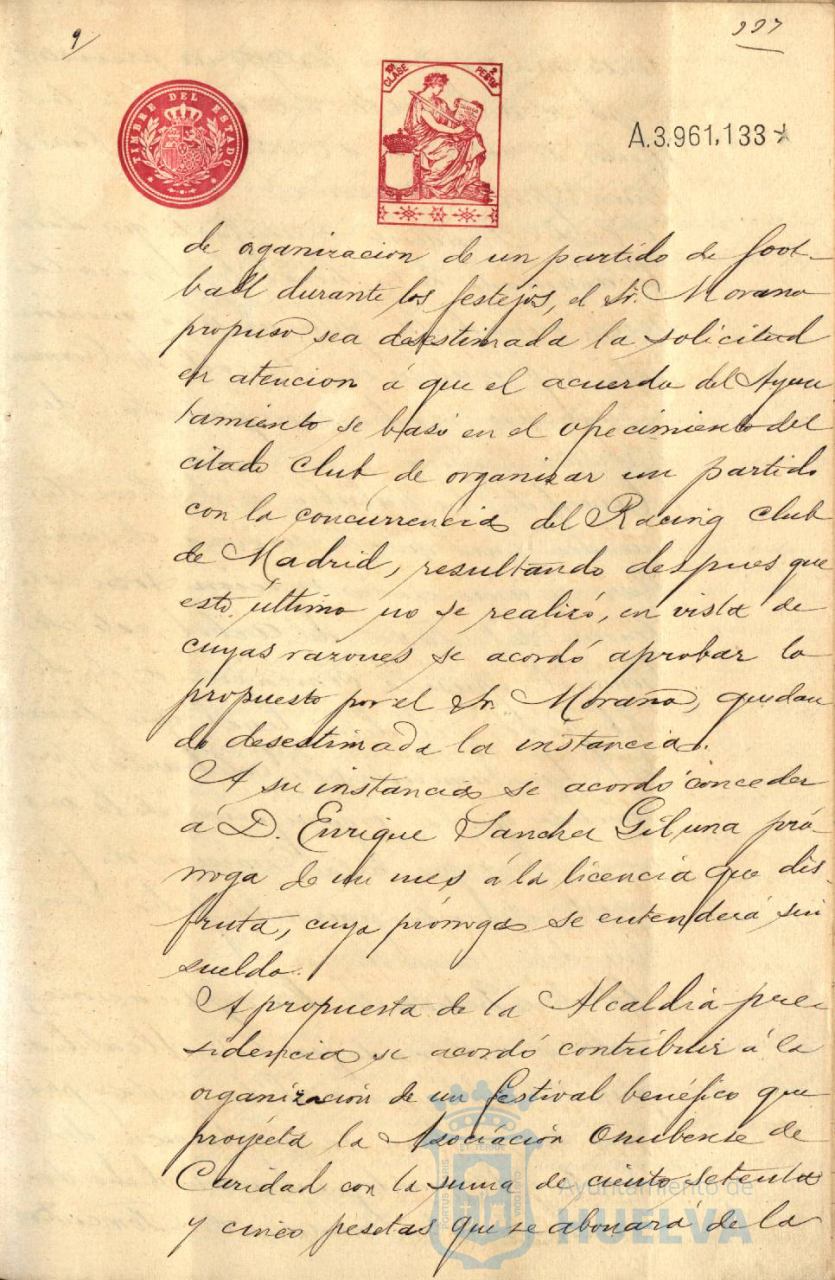 9/
227
TIMBRE DEL ESTADO
10ª CLASE 2 PESETAS
A.3.961,133
de organizacion de un partido de foot-
ball durante los festejos, el Sr. Morano
propuso sea desestimada la solicitud
en atencion á que el acuerdo del Ayun
tamiento se basó en el ofrecimiento del
citado Club de organizar un partido
con la concurrencia del Racing Club
de Madrid, resultando despues que
esto último no se realizó, en vista de
cuyas razones se acordó aprobar lo
propuesto por el Sr. Morano, quedan
do desestimada la instancia.
A su instancia se acordó conceder
á D. Enrique Sanchez Gil una pró-
rroga de un mes á la licencia que dis-
fruta, cuya prórroga se entenderá sin
sueldo.
A propuesta de la Alcaldia pre
sidencia se acordó contribuir á la
organización de un festival benéfico que
proyecta la Asociación Onubense de
Caridad con la suma de ciento setenta
y cinco pesetas que se abonará de la
Ayuntamiento de
HUELVA